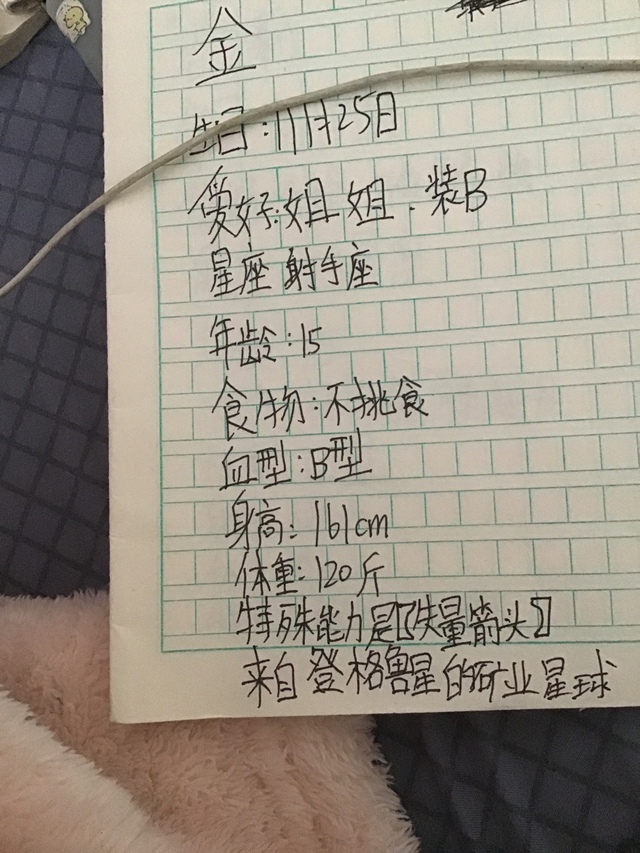 金
生日：11月25日
爱好：姐姐．装B
星座 射手座
年龄：15
食物：不挑食
血型：B型
身高：161cm
体重：120斤
特殊能力是【失量箭头】
来自登格鲁星的矿业星球